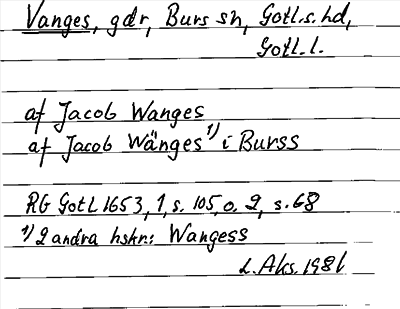 Vanges, gdr, Burs sn, Gotl.s.hd,
Gotl.l.
af Jacob Wanges
af Jacob Wänges 1) i Burss
RG GotL 1653, 1, s. 105, o. 2, s. 68
1) 2 andra hskr.: Wangess
L. Aks. 1981